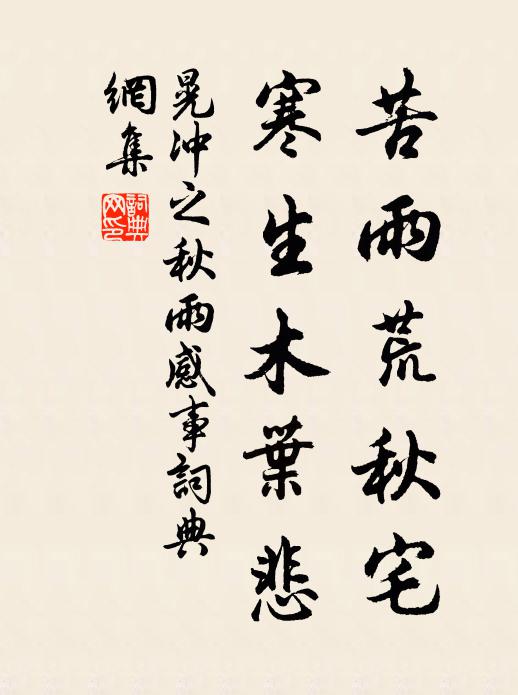 苦雨荒秋宅
寒生木葉悲
晁冲之秋雨感事詞典
網集
詞典
网印